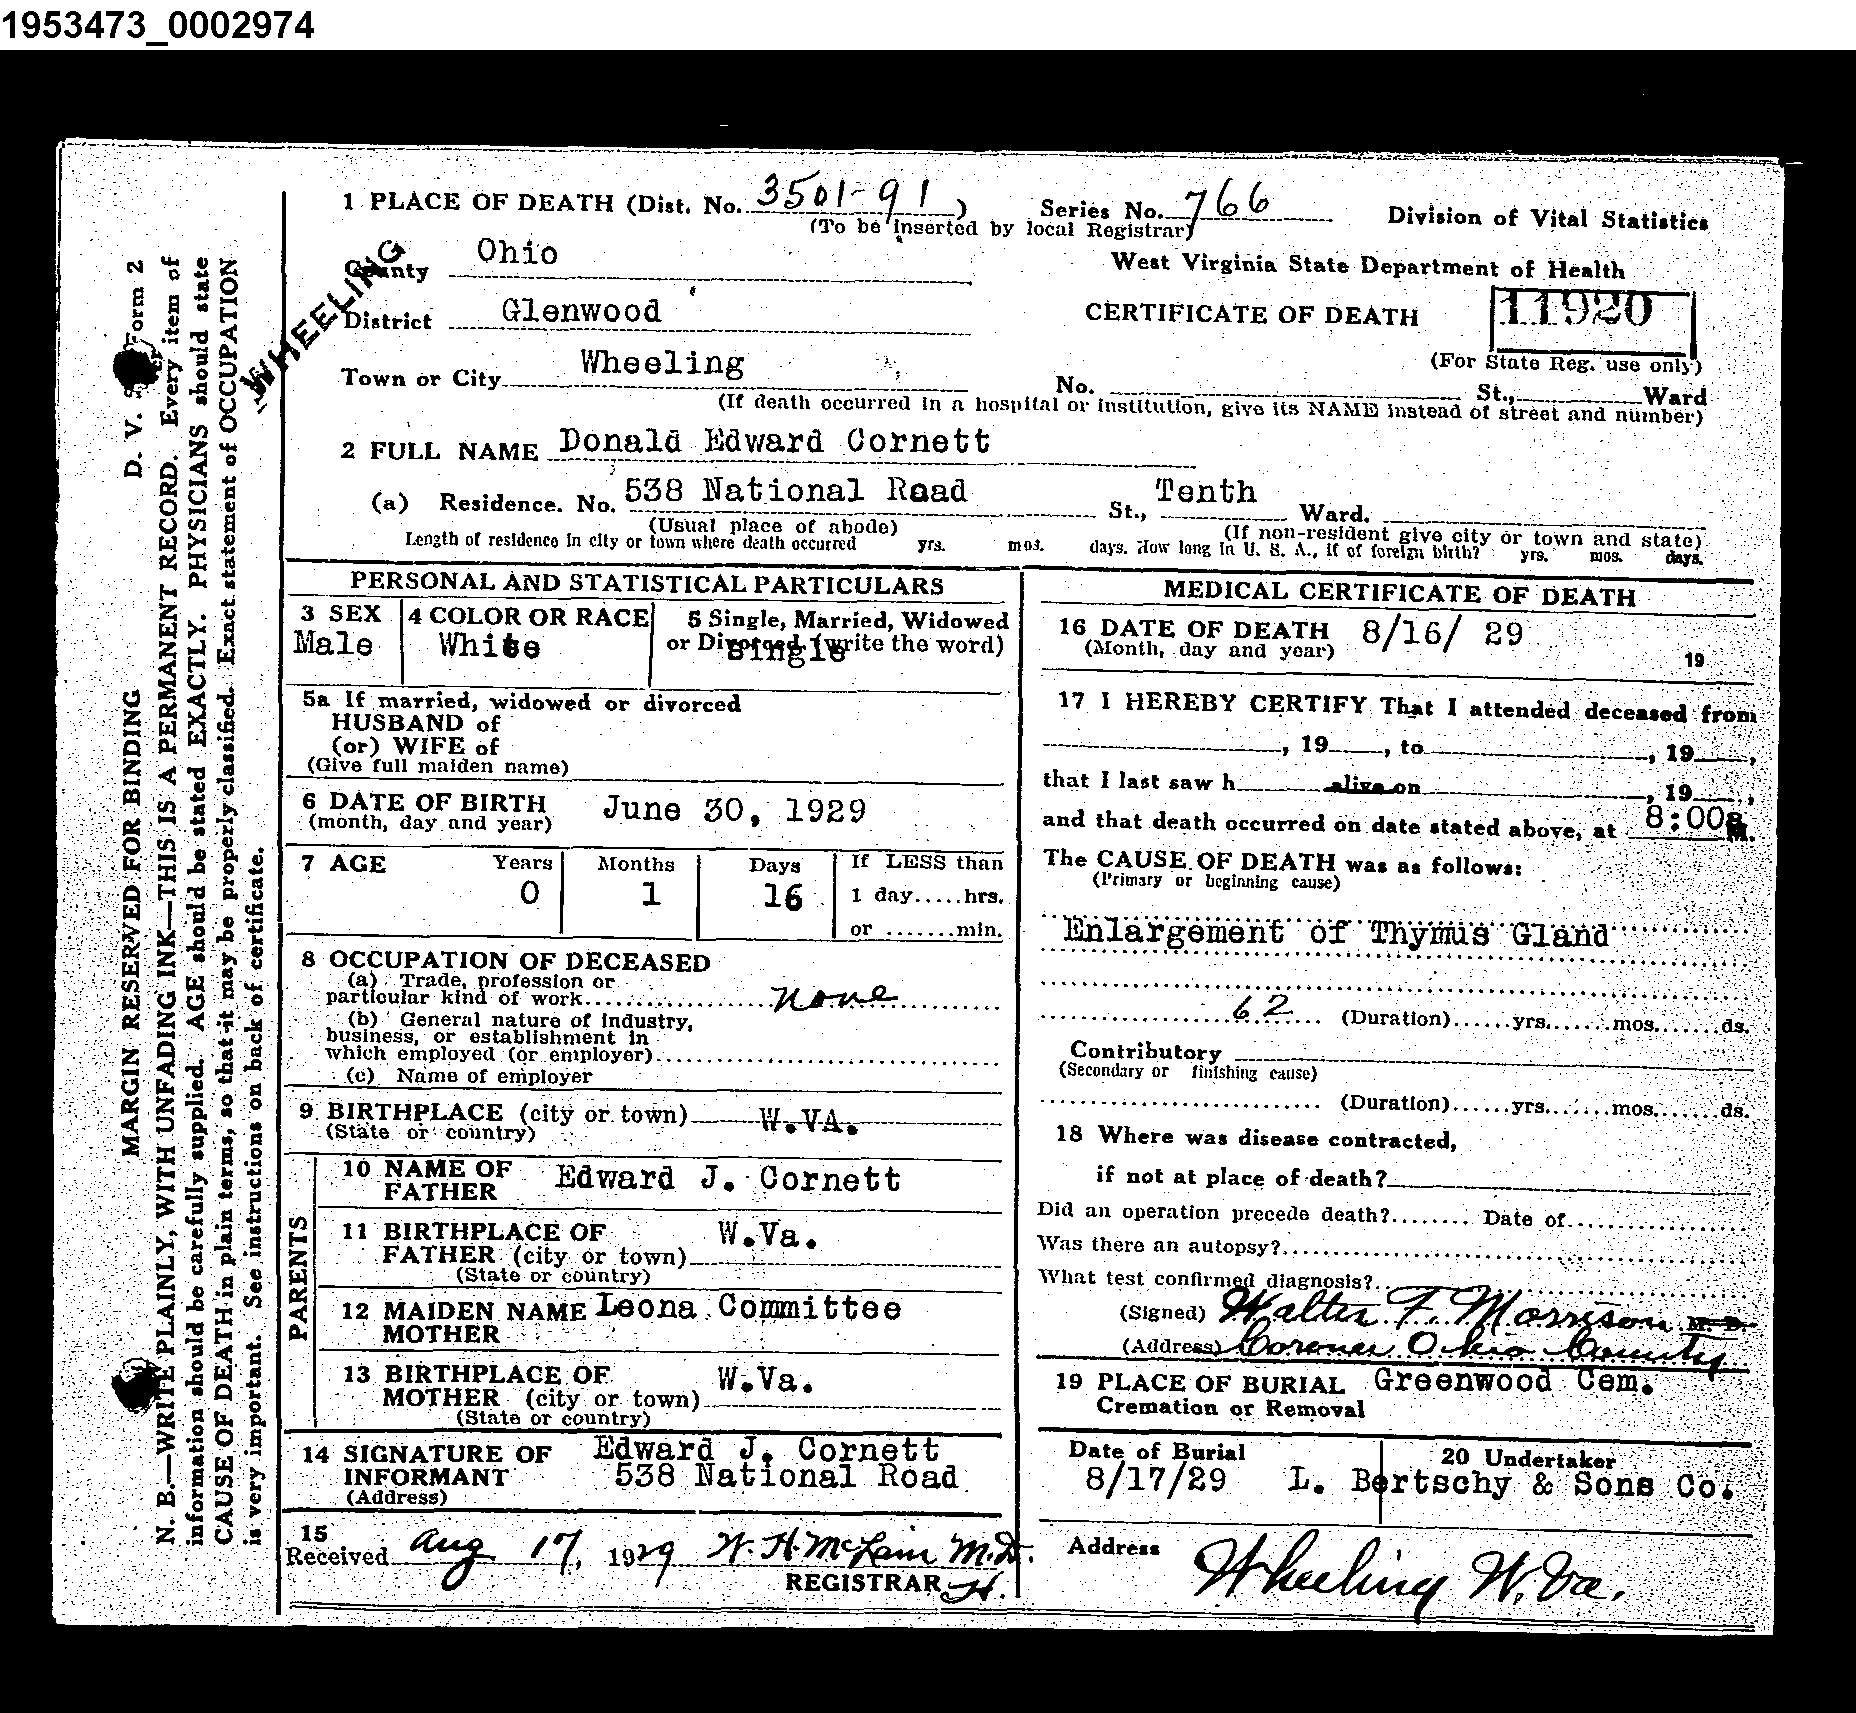 1953473_0002974
1 PLACE OF DEATH (Dist. No. 3501-91) Series No. 766 Division of Vital Statistics
(To be inserted by local Registrar)
WHEELING
County Ohio West Virginia State Department of Health
District Glenwood CERTIFICATE OF DEATH 11920
(For State Reg. use only)
Town or City Wheeling No. St., Ward
(If death occurred in a hospital or institution, give its NAME instead of street and number)
2 FULL NAME Donald Edward Cornett
(a) Residence. No. 538 National Road St., Tenth Ward.
(Usual place of abode) (If non-resident give city or town and state)
Length of residence in city or town where death occurred yrs. mos. days. How long in U. S. A., if of foreign birth? yrs. mos. days.
PERSONAL AND STATISTICAL PARTICULARS
3 SEX 4 COLOR OR RACE 5 Single, Married, Widowed
or Divorced (write the word)
Male White Single
5a If married, widowed or divorced
HUSBAND of
(or) WIFE of
(Give full maiden name)
6 DATE OF BIRTH June 30, 1929
(month, day and year)
7 AGE Years Months Days If LESS than
0 1 16 1 day.....hrs.
or .......min.
8 OCCUPATION OF DECEASED
(a) Trade, profession or
particular kind of work none
(b) General nature of industry,
business, or establishment in
which employed (or employer)
(c) Name of employer
9 BIRTHPLACE (city or town) W.VA.
(State or country)
PARENTS
10 NAME OF Edward J. Cornett
FATHER
11 BIRTHPLACE OF W.Va.
FATHER (city or town)
(State or country)
12 MAIDEN NAME Leona Committee
MOTHER
13 BIRTHPLACE OF W.Va.
MOTHER (city or town)
(State or country)
14 SIGNATURE OF Edward J. Cornett
INFORMANT 538 National Road
(Address)
15
Received Aug 17, 1929 W. H. McLain M.D.
REGISTRAR H.
MEDICAL CERTIFICATE OF DEATH
16 DATE OF DEATH 8/16/ 29
(Month, day and year) 19
17 I HEREBY CERTIFY That I attended deceased from
, 19 , to , 19 ,
that I last saw h alive on , 19 ,
and that death occurred on date stated above, at 8:00a M.
The CAUSE OF DEATH was as follows:
(Primary or beginning cause)
Enlargement of Thymus Gland
62 (Duration)......yrs.......mos.......ds.
Contributory
(Secondary or finishing cause)
(Duration)......yrs.......mos.......ds.
18 Where was disease contracted,
if not at place of death?
Did an operation precede death?........ Date of
Was there an autopsy?
What test confirmed diagnosis?
(Signed) Walter F. Morrison M. D.
(Address) Coroner Ohio County
19 PLACE OF BURIAL Greenwood Cem.
Cremation or Removal
Date of Burial 20 Undertaker
8/17/29 L. Bertschy & Sons Co.
Address Wheeling W. Va.
MARGIN RESERVED FOR BINDING D. V. S. Form 2
N. B.—WRITE PLAINLY, WITH UNFADING INK—THIS IS A PERMANENT RECORD. Every item of
information should be carefully supplied. AGE should be stated EXACTLY. PHYSICIANS should state
CAUSE OF DEATH in plain terms, so that it may be properly classified. Exact statement of OCCUPATION
is very important. See instructions on back of certificate.